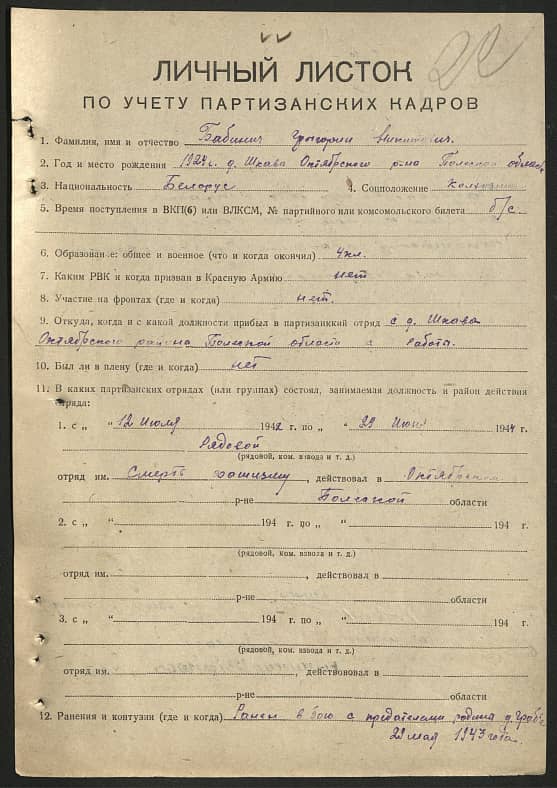 22
ЛИЧНЫЙ ЛИСТОК
ПО УЧЕТУ ПАРТИЗАНСКИХ КАДРОВ
1. Фамилия, имя и отчество Бабинич Григорий Никитович.
2. Год и место рождения 1924 г. д. Шкава Октябрского р-на Полеской области
3. Национальность Белорус 4. Соцположение Колхозник
5. Время поступления в ВКП(б) или ВЛКСМ, № партийного или комсомольского билета б/с.
6. Образование: общее и военное (что и когда окончил) 4 кл.
7. Каким РВК и когда призван в Красную Армию нет
8. Участие на фронтах (где и когда) нет.
9. Откуда, когда и с какой должности прибыл в партизанкий отряд с д. Шкава
Октябрского района Полеской области с работа.
10. Был ли в плену (где и когда) нет
11. В каких партизанских отрядах (или группах) состоял, занимаемая должность и район действия
отряда:
1. с „ “ 12 Июля 1942 г. по „ “ 29 Июня 1944 г.
Рядовой
(рядовой, ком. взвода и т. д.)
отряд им. Смерть фашизму, действовал в Октябрском
р-не Полеской области
2. с „ “ 194 г. по „ “ 194 г.
(рядовой, ком. взвода и т. д.)
отряд им. , действовал в
р-не области
3. с „ “ 194 г. по „ “ 194 г.
(рядовой, ком. взвода и т. д.)
отряд им. , действовал в
р-не области
12. Ранения и контузии (где и когда) Ранен в бою с предателями родина д.
29 мая 1943 года.